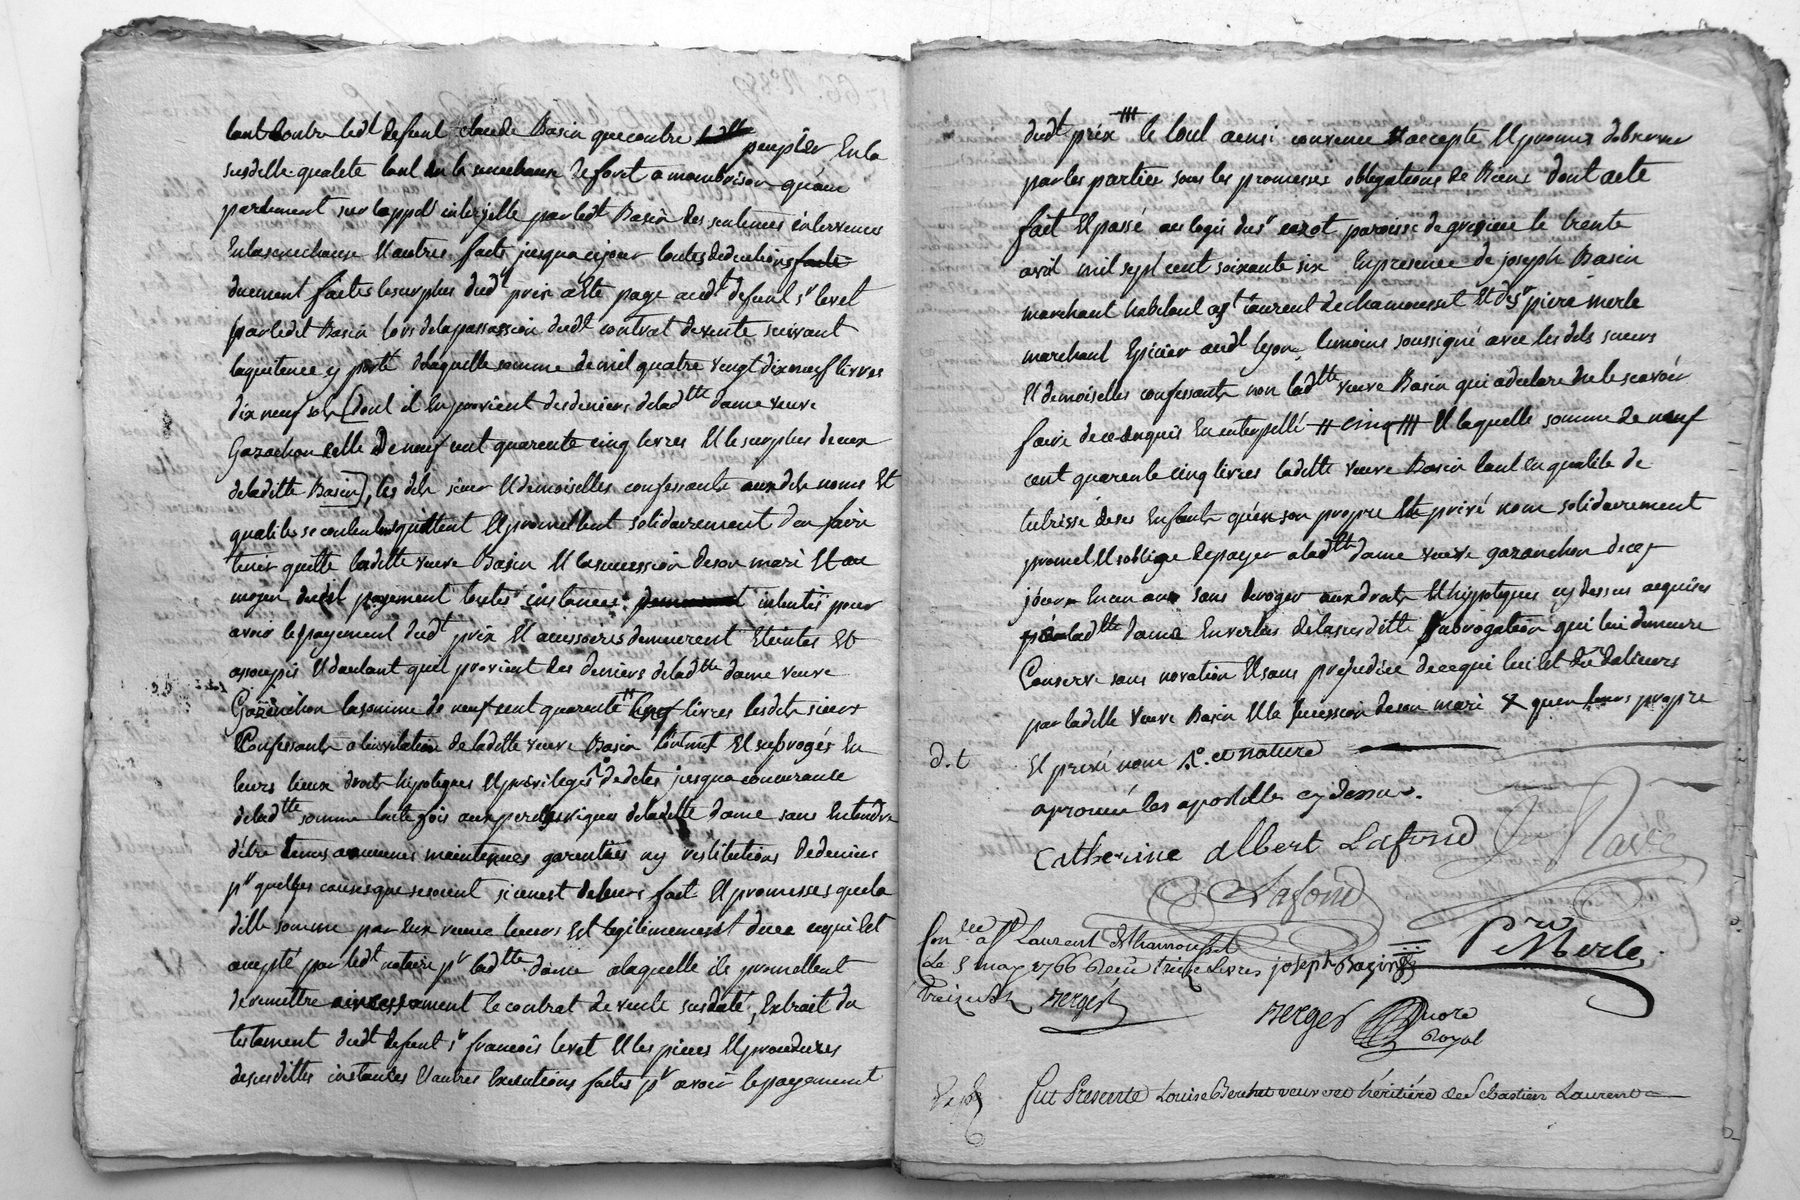 tant Contre ledt defunt claude Basin que contre peupier En la
susditte qualité tant En la senechaussé de foret a montbrison qu'au
parlement sur l'appel interjetté par ledt Basin des sentences intervenues
En la senechaussé Et autres faits jusqu'a ce jour toutes deductions faite
duement faites le surplus dudt prix a Eté payé audt defunt sr levet
par ledit Basin lors de la passassion dudt contrat de vente suivant
la quitence y porté de laquelle somme de mil quatre vengt dix neuf livres
dix neuf sols (dont il En provient des deniers de ladtte dame veuve
Gazanchon celle De neuf cent quarente cinq livres Et le surplus de ceux
de laditte Basin), les dits sieur Et demoiselles confessants auxdits noms Et
qualites se contentent quittent Et promettent solidairement d'en faire
tenir quitte laditte veuve Basin Et la succession de son mari Et au
moyen dudit payement toutes instances intentés pour
avoir le payement dudt prix Et accessoires demeurent Eteintes Et
assoupis Et d'autant qu'il provient des deniers de ladtte dame veuve
Gazanchon la somme de neuf cent quarente cinq livres lesdits sieurs
Confessants a l'invitation de laditte veuve Basin l'ont mit Et subrogés En
leurs lieux droits hipoteques Et privileges De dates jusqu'a concurance
de ladtte somme toute fois aux perils risques de laditte dame sans Entendre
d'être tenus a aucunes maintenues garenties ny restitutions De deniers
pr quelles causes que se soient si ce n'est de leurs faits Et promesses que la
ditte somme par Eux receue leurs Est legitimement deue ce qui Est
accepté par ledt notaire pr ladtte dame a laquelle ils promettent
de remettre aincessament le contrat de vente susdaté, Extrait du
testament dudt defunt sr francois levet Et les pieces Et procedures
desdittes instances Et autres Executions faites pr avoir le payement
dudt prix le tout ainsi convenu accepté Et promis d'observer
par les parties sous les promesses obligations de Biens dont acte
fait Et passé au logis du sr paroisse de grezieu le trente
avril mil sept cent soixante six En presence de joseph Basin
marchant habitant a st Laurent de chamousset Et de sr pierre merle
marchant Epicier audt lyon temoins soussignés avec lesdits sieurs
Et demoiselles confessants non ladtte veuve Basin qui a declare ne le scavoir
faire de ce enquis Et interpellé cinq Et laquelle somme de neuf
cent quarente cinq livres laditte veuve Basin tant En qualite de
tutrisse de ses Enfants qu'en son propre Et privé nom solidairement
promet Et s'oblige de payer a ladtte dame veuve gazanchon de ce
jour En un an sans deroger aux droits Et hipoteques cy dessus acquises
a ladtte dame En vertu de la susditte Subrogation qui lui demeure
Conservé sans novation Et sans prejudice de ce qui lui Est Du d'ailleurs
par laditte Veuve Basin Et la succession de son mari qu'en propre
d.t Et privé nom et nature
aprouvé les apostilles cy dessus.
Catherine Albert Lafond Levet
Lafond
Conlée a St Laurent de Chamousset
Le 5 may 1766 Receu treize Livres joseph Bazin
treize sols Berger
Pre Merle
Berger Nore
Royal
Fut Presente Louise Berchet veuve et héritière de Sebastien Laurent